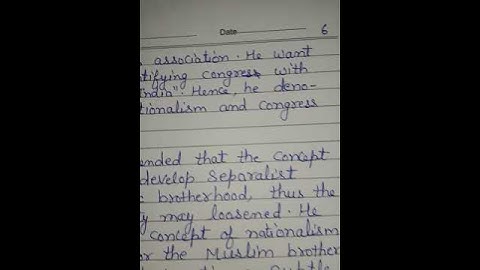 Date 6
association. He want
tifying congress with
India". Hence, he deno-
tionalism and congress
ended that the concept
develop separalist
brotherhood, thus the
y may loosened. He
concept of nationalism
or the Muslim brother